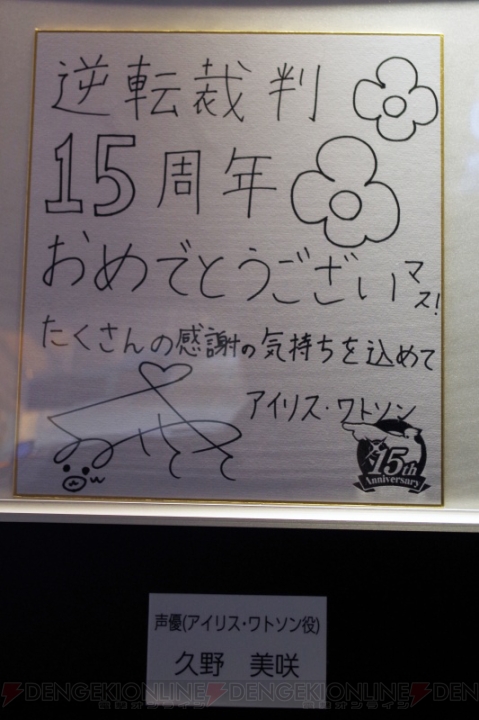 逆転裁判
15周年
おめでとうございマス!
たくさんの感謝の気持ちを込めて
アイリス・ワトソン
15th
Anniversary
声優(アイリス・ワトソン役)
久野 美咲
DENGEKIONLINE DENGEKIONLINE